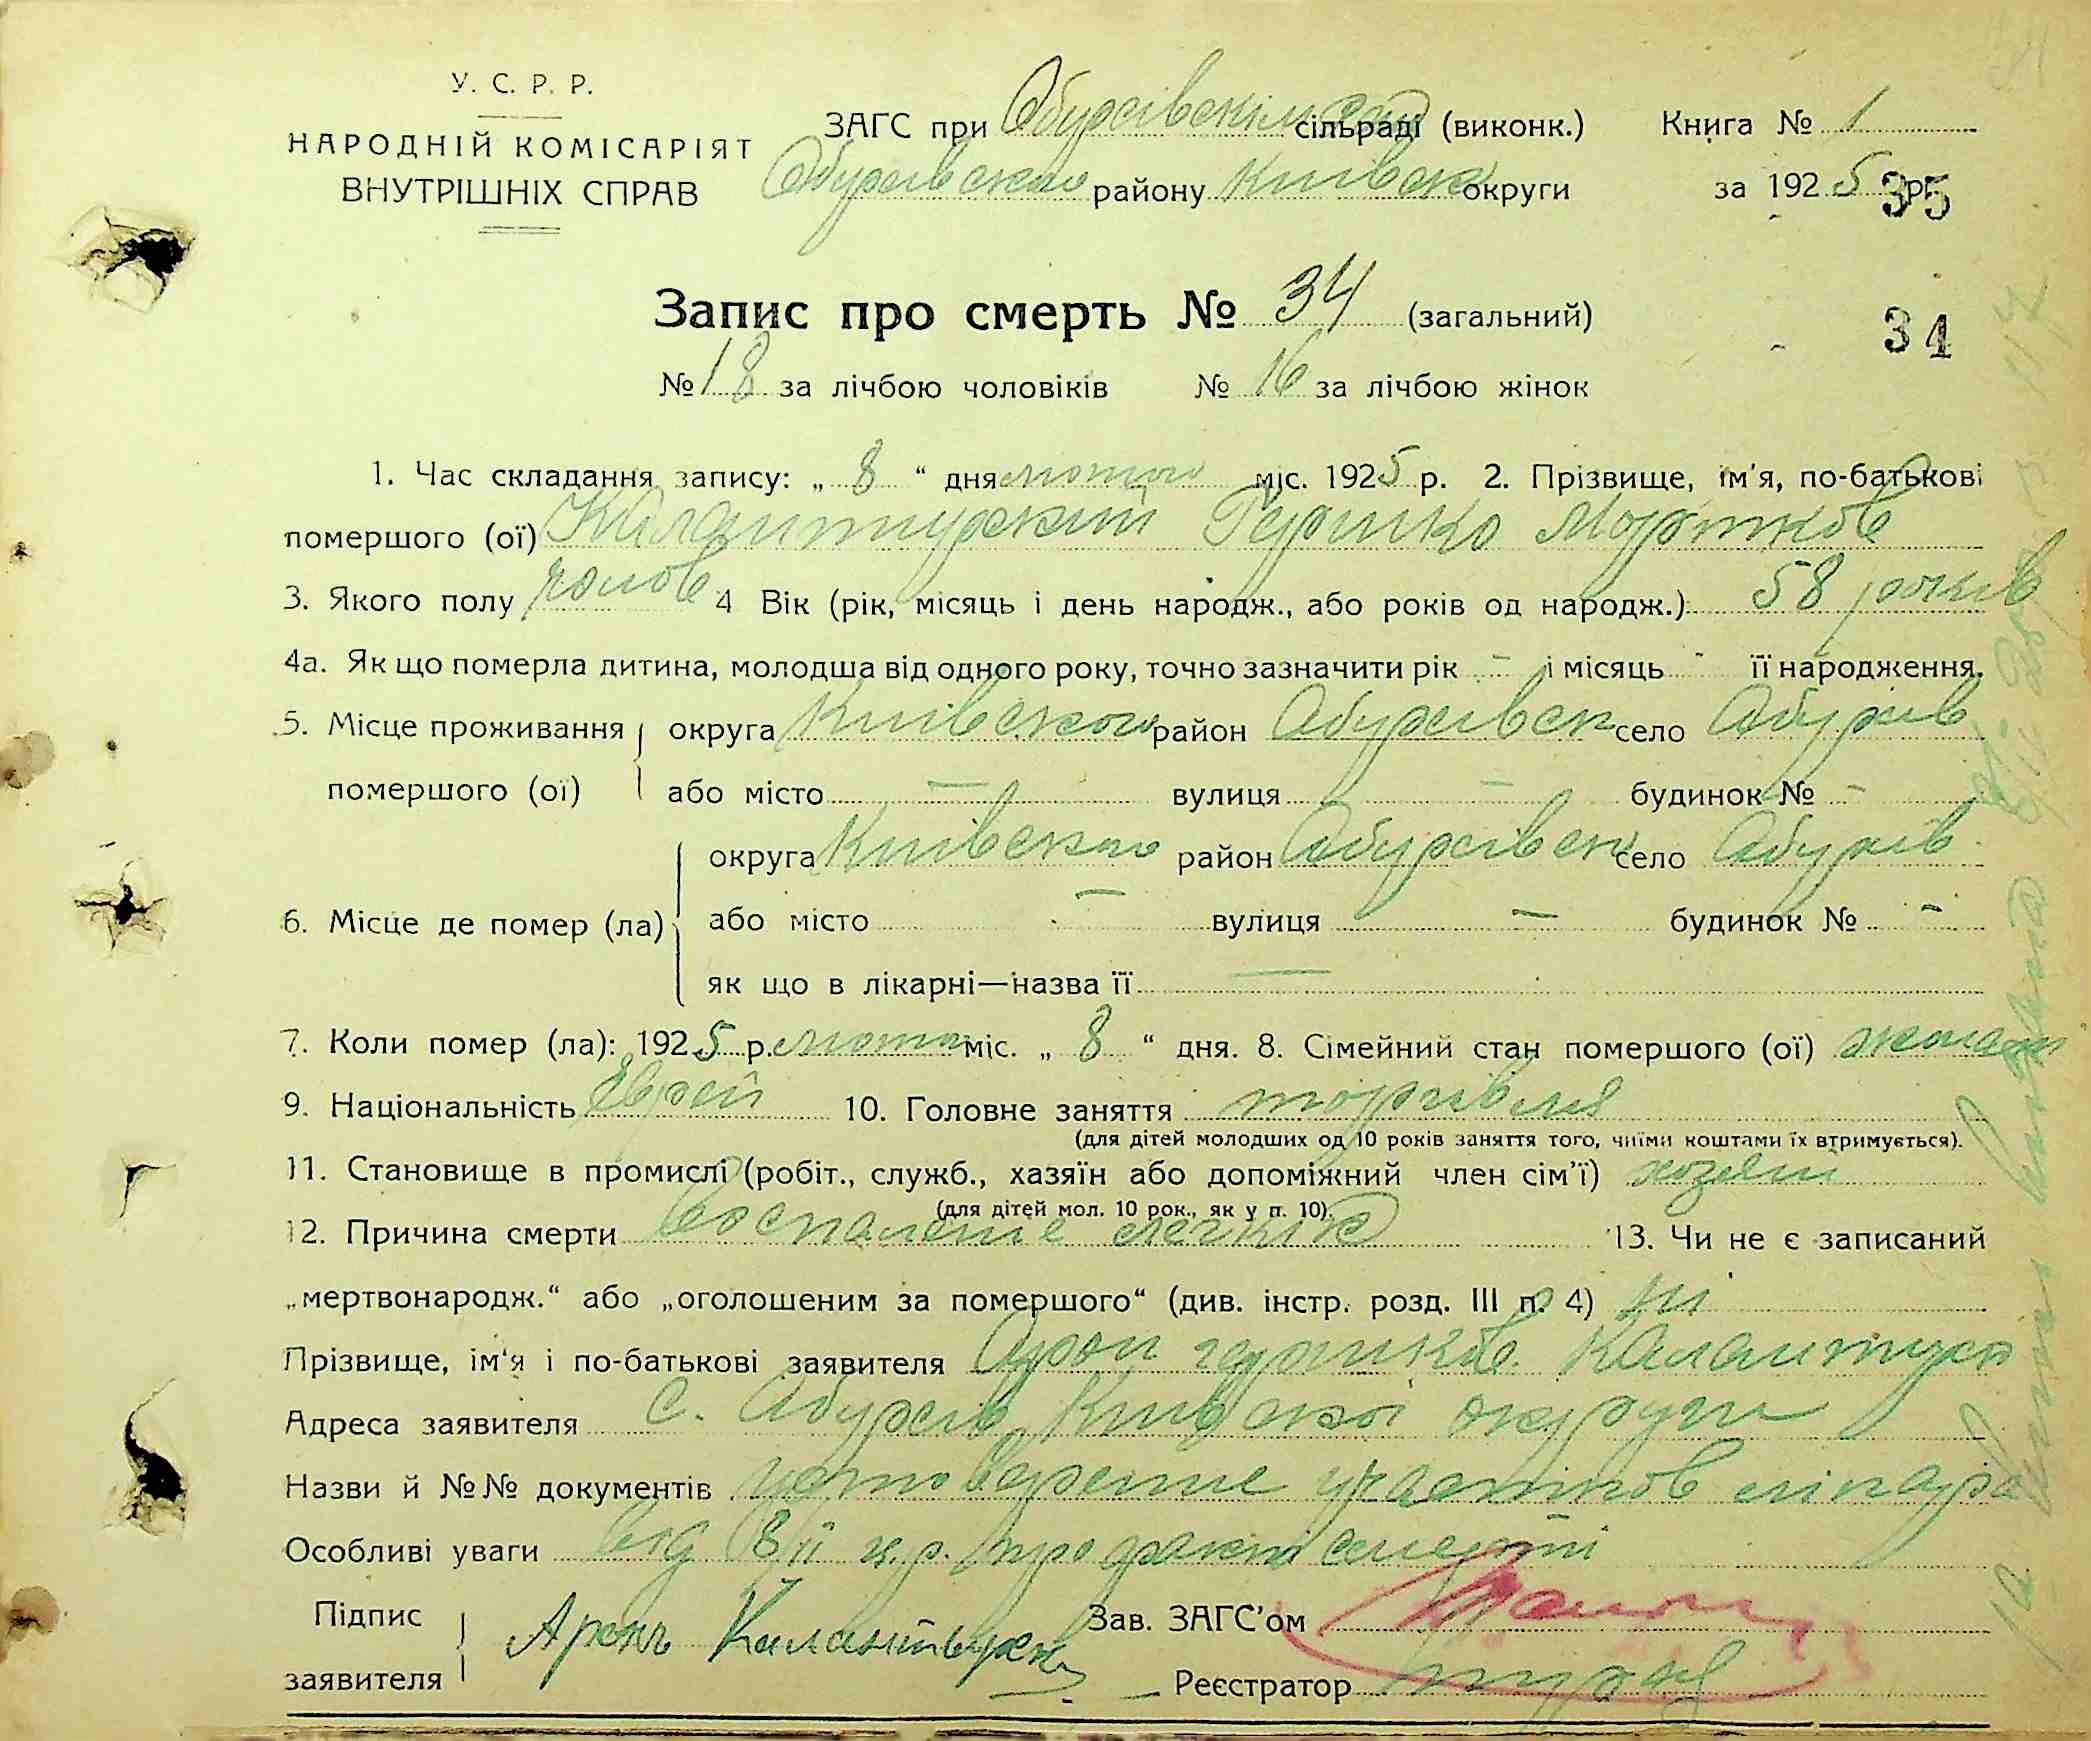 У. С. Р. Р.
НАРОДНІЙ КОМІСАРІЯТ
ВНУТРІШНІХ СПРАВ
ЗАГС при Обухівскім сільраді (виконк.)
Обухівского району Київск округи
Книга № 1
за 1925 р.
35
Запис про смерть № 34 (загальний)
34
№ 18 за лічбою чоловіків № 16 за лічбою жінок
1. Час складання запису: „ 8 “ дня лютого міс. 1925 р. 2. Прізвище, ім'я, по-батькові
помершого (ої) Калантирский Гершко Мортков
3. Якого полу чолов 4 Вік (рік, місяць і день народж., або років од народж.) 58 років
4а. Як що померла дитина, молодша від одного року, точно зазначити рік - і місяць - її народження.
5. Місце проживання помершого (ої) округа Київского район Обухівск село Обухів
або місто — вулиця — будинок № -
6. Місце де помер (ла) округа Київского район Обухівск село Обухів
або місто — вулиця — будинок № -
як що в лікарні—назва її —
7. Коли помер (ла): 1925 р. лютого міс. „ 8 “ дня. 8. Сімейний стан помершого (ої) жонат
9. Національність Єврей 10. Головне заняття торгівля
(для дітей молодших од 10 років заняття того, чиїми коштами їх втримується).
11. Становище в промислі (робіт., служб., хазяїн або допоміжний член сім'ї) хозяїн
(для дітей мол. 10 рок., як у п. 10).
12. Причина смерти воспаленіе легких 13. Чи не є записаний
„мертвонародж.“ або „оголошеним за помершого“ (див. інстр. розд. III п. 4) ні
Прізвище, ім'я і по-батькові заявителя Арон Гершков.
Адреса заявителя с. Обухів Київскої округи
Назви й №№ документів удостоверение участков лікаря
Особливі уваги від 8/II ц.р. про факт смерти
Підпис заявителя Аронъ
Зав. ЗАГС'ом
Реєстратор